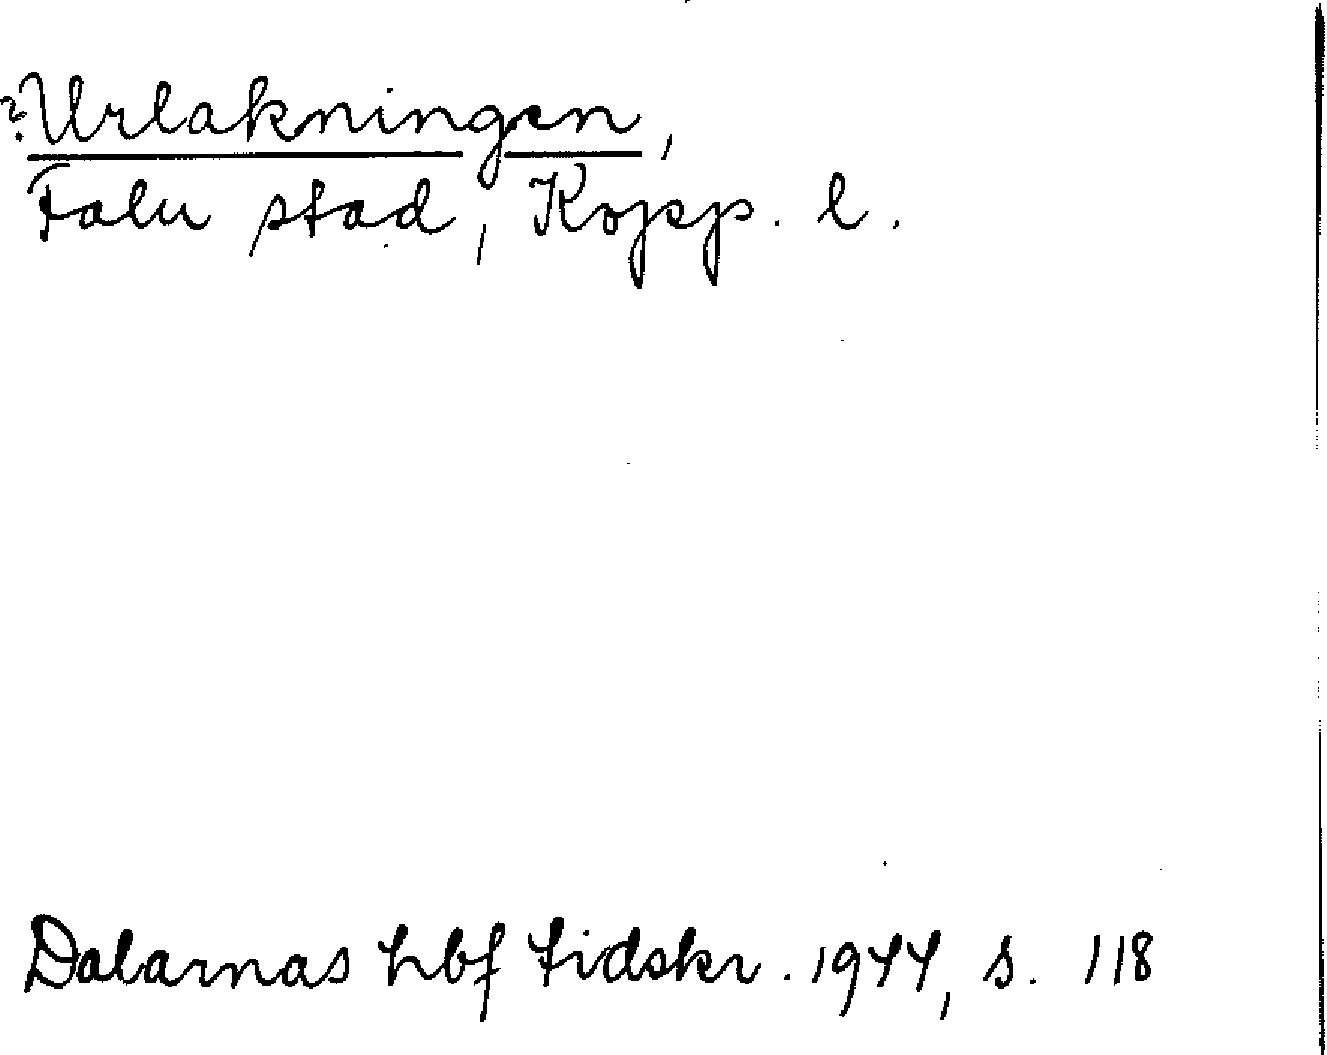 ?Urlakningen,
Falu stad, Kopp. l.
Dalarnas hbf tidskr. 1944, s. 118